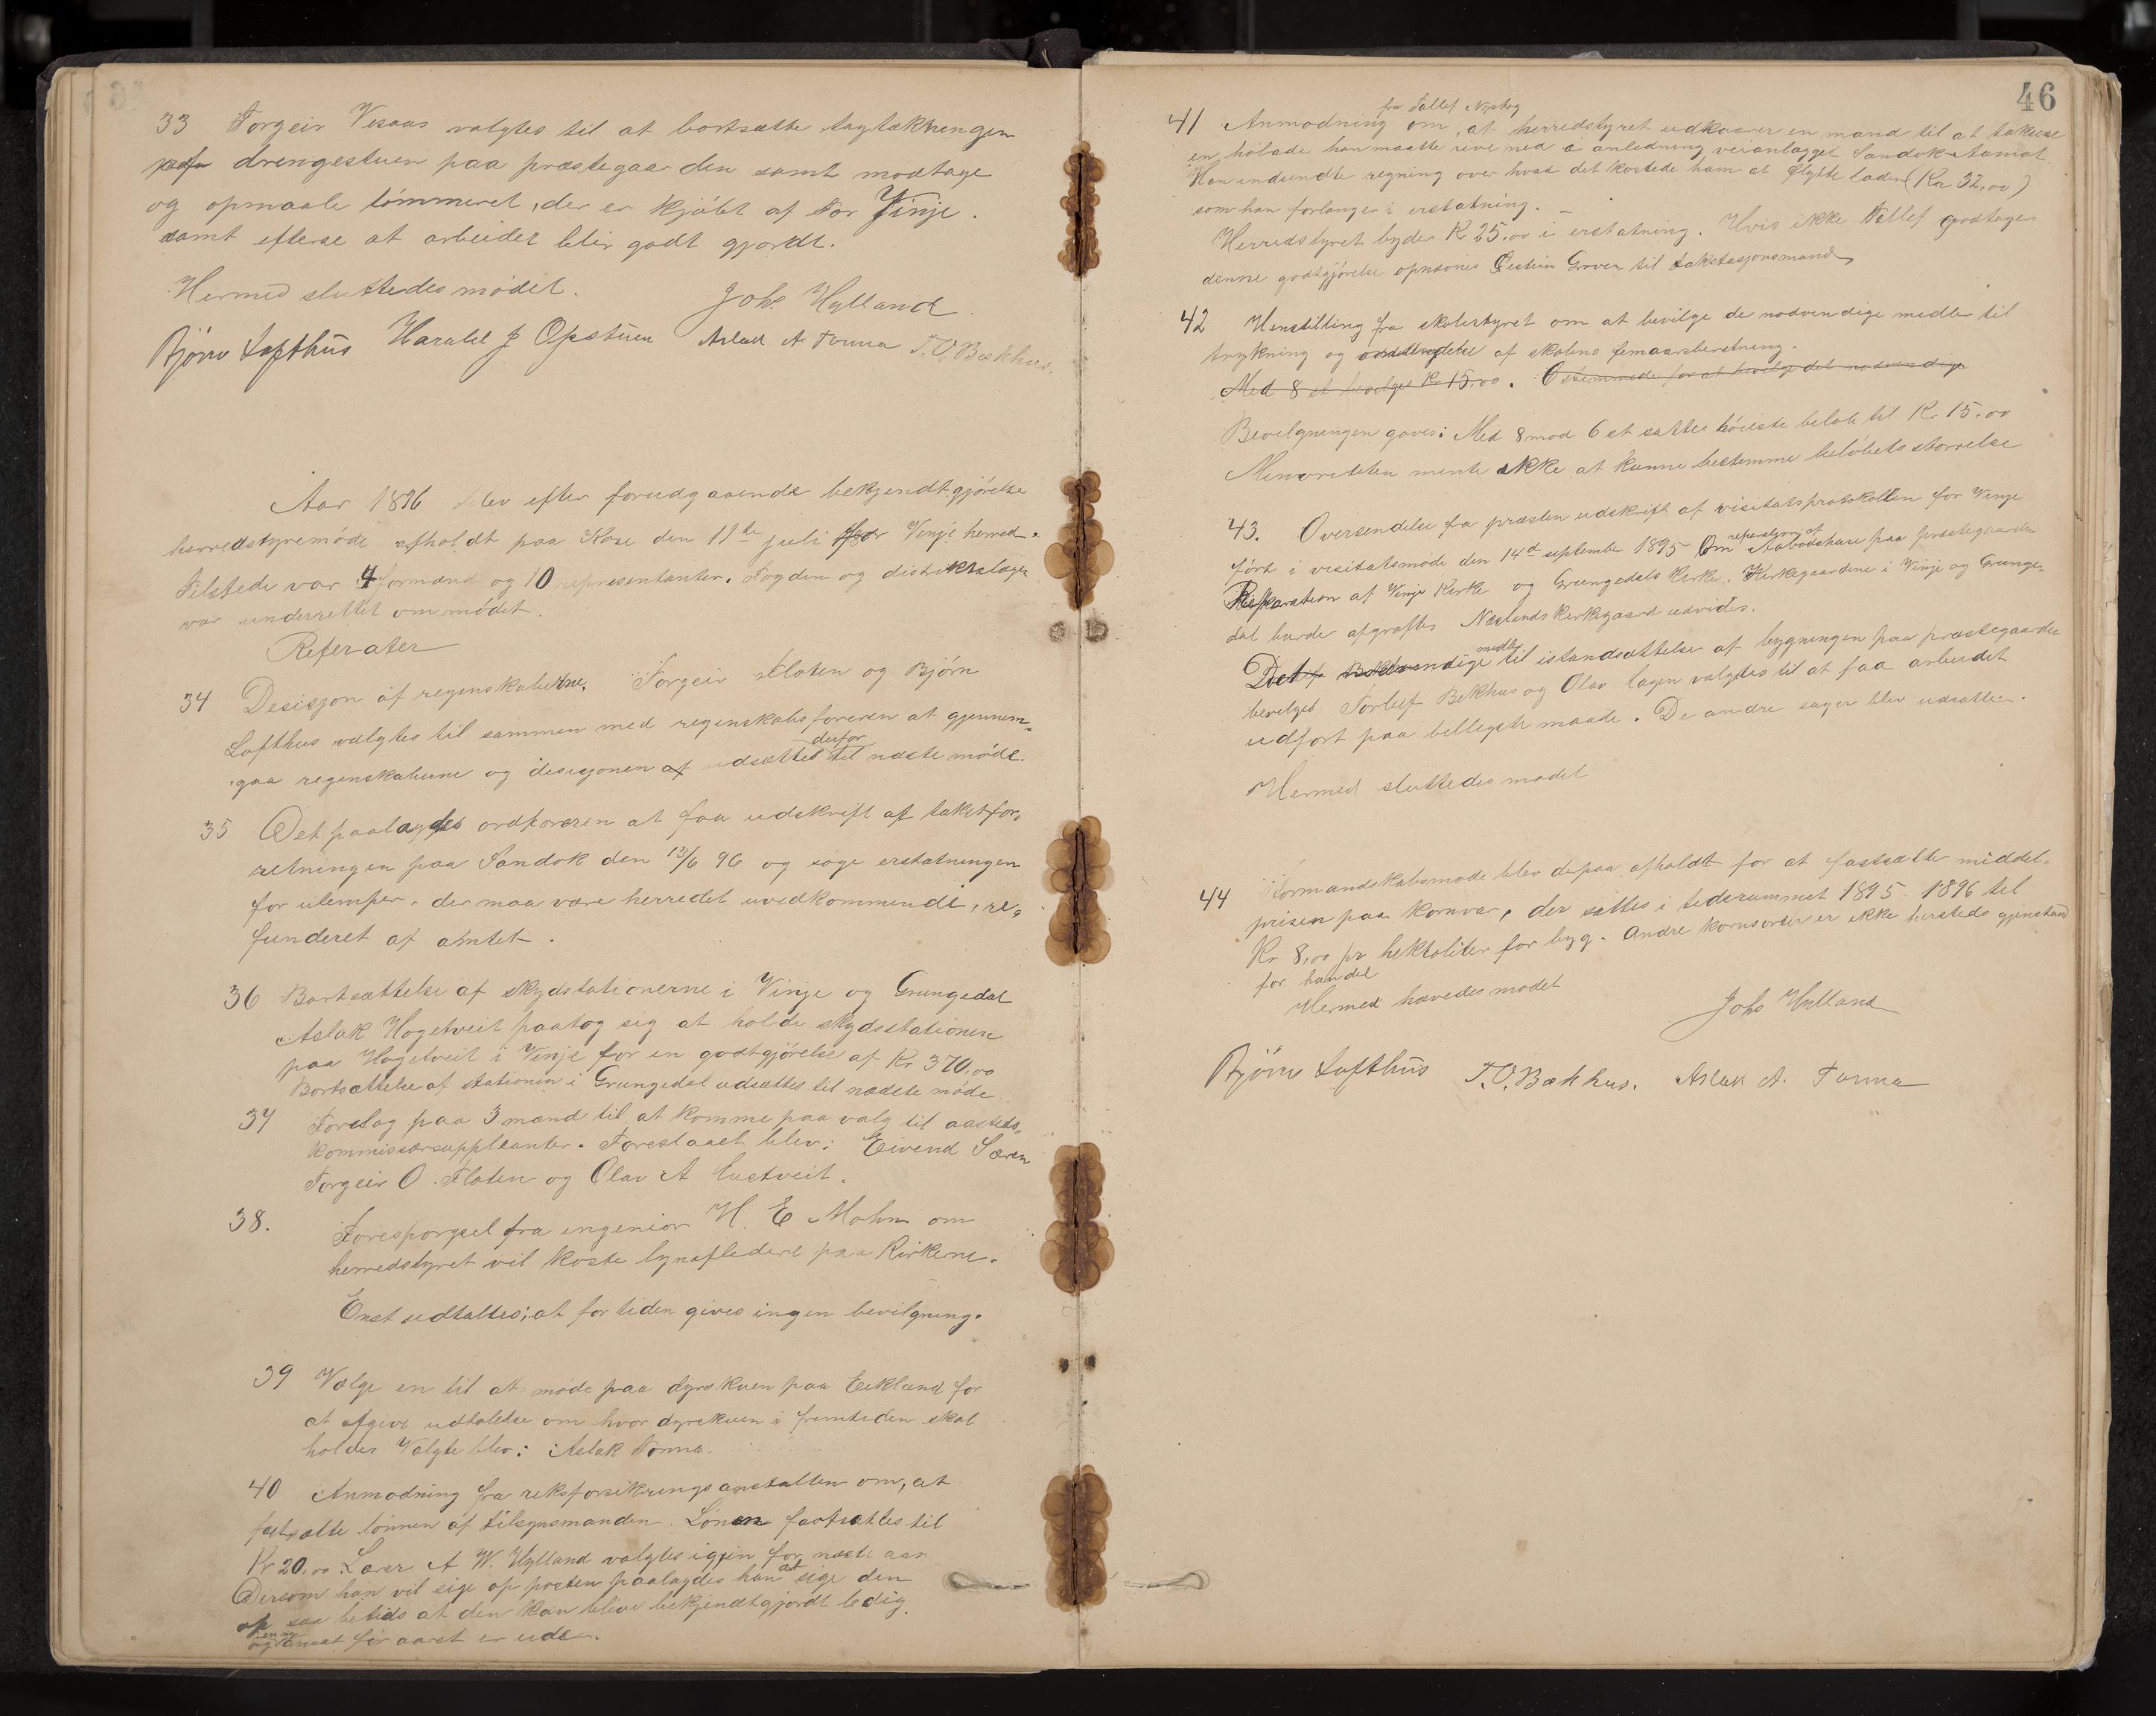 33 Torgeir Vesaas valgtes til at bortsætte tagtækningen
drengestuen paa præstegaarden samt modtage
og opmaale tömmeret, der er kjöbt af Tor Vinje.
samt efterse at arbeidet blir godt gjordt.
Hermed sluttedes mödet.
Johs Hylland.
Björn Lofthus Harald J Opstuen Aslak A Tonna T.O. Bækhus.
Aar 1896 blev efter forudgaaende bekjendtgjörelse
herredstyremöde afholdt paa Kose den 11te juli for Vinje herred.
Tilstede var 4 formænd og 10 repræsentanter. Fogden og distriktslægen
var underrettet om mödet.
Referater
34 Desisjon af regnskaberne. Torgeir Flaten og Björn
Lofthus valgtes til sammen med regnskabsföreren at gjennem-
gaa regnskaberne og desisjonen udsættes derfor til næste möde.
35 Det paalagdes ordföreren at faa udskrift af takstfor-
retningen paa Sandok den 13/6 96 og söge erstatningen
for ulemper, der maa være herredet uvedkommende, re-
funderet af amtet.
36 Bortsættelse af skydstationerne i Vinje og Grungedal
Aslak Hogetveit paatog sig at holde skydsstationen
paa Hogetveit i Vinje for en godtgjörelse af Kr 370,00
Bortsættelse af stationen i Grungedal udsættes til næste möde.
37 Forslag paa 3 mænd til at komme paa valg til aasteds-
kommissærsuppleanter. Foreslaaet blev: Eivend Særen
Torgeir O. Flaten og Olav A Lustveit.
38. Forespörgsel fra ingeniör H. E Mohn om
herredstyret vil koste lynafledere paa Kirkerne.
Enst udtaltes: at for tiden gives ingen bevilgning.
39 Vælge en til at möde paa dyrskuen paa Eekland for
at afgive udtalelse om hvor dyrskuen i fremtiden skal
holdes Valgte blev: Aslak Tonna.
40 Anmodning fra riksforsikringsanstalten om, at
fastsætte lönnen af tilsynsmanden. Lönen fastsættes til
Kr 20,00. Lærer A W. Hylland valgtes igjen for næste aar
Dersom han vil sige op posten paalagdes han at sige den
op saa betids at den kan blive bekjendtgjordt ledig
og ansat för aaret er ude.
46
fra Tallef Nystog
41 Anmodning om, at herredstyret udkaarer en mand til at taksere
en hölade han maatte rive ned i anledning veianlægget Sandok-Aamot.
Han indsendte regning over hvad det kostede ham at flytte laden (Kr 32,00)
som han forlanger i erstatning.
Herredstyret byder Kr 25,00 i erstatning. Hvis ikke Tallef godtager
denne godtgjörelse opnævnes Östein Grover til takstasjonsmand
42 Henstilling fra skolestyret om at bevilge de nødvendige midler til
trykning og af skolens femaarsberetning.
Med 8 st bevilges Kr 15,00. 6 stemmede for at bevilge det nødvendige
Bevilgningen gaves: Med 8 mod 6 st sattes höieste belöb til Kr 15,00
Menoriteten mente ikke at kunne bestemme belöbets störrelse
43. Oversendelse fra præsten udskrift af visitatsprotokollen for Vinje
fört i visitatsmöde den 14d september 1895 Om reparasjon af Aabodshuse paa præstegaarden
Reparation af Vinje Kirke og Grungedals Kirke. Kirkegaardene i Vinje og Grunge-
dal burde afgröftes Næslands kirkegaard udvides.
Det nødvendige midler til istandsættelse af bygningen paa præstegaarden
bevilges Torleif Bækhus og Olav Lagen valgtes til at faa arbeidet
udfört paa billigste maade. De andre sager blev udsatte.
Hermed sluttedes mødet
44 Formandskabsmöde blev depaa afholdt for at fastsætte middel-
prisen paa Kornvar, der sattes i tidsrummet 1895 1896 til
Kr 8,00 pr hektoliter for byg. Andre kornsorter er ikke hersteds gjenstand
for handel
Hermed hævedes mødet
Johs Hylland
Björn Lofthus T.O. Bækhus. Aslak A. Tonna